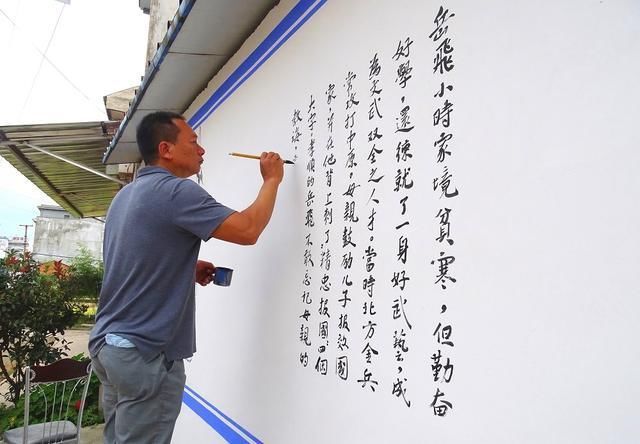 岳飛小時家境貧寒，但勤奋
好學，還練就了一身好武藝，成
為文武双全之人才。當時北方金兵
常攻打中原，母親鼓励儿子报效國
家，并在他背上刺了“精忠报國”四個
大字。孝順的岳飛不敢忘記母親的
教诲